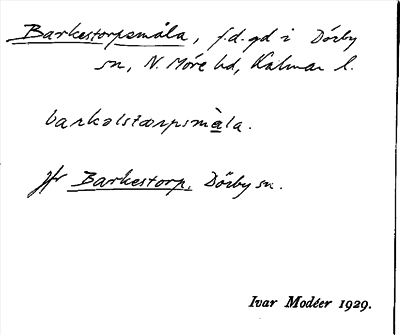 Barkestorpsmåla, f.d. gd i Dörby
sn, N. Möre hd, Kalmar l.
barkəlstærpsmà̱la.
Jfr Barkestorp, Dörby sn.
Ivar Modéer 1929.